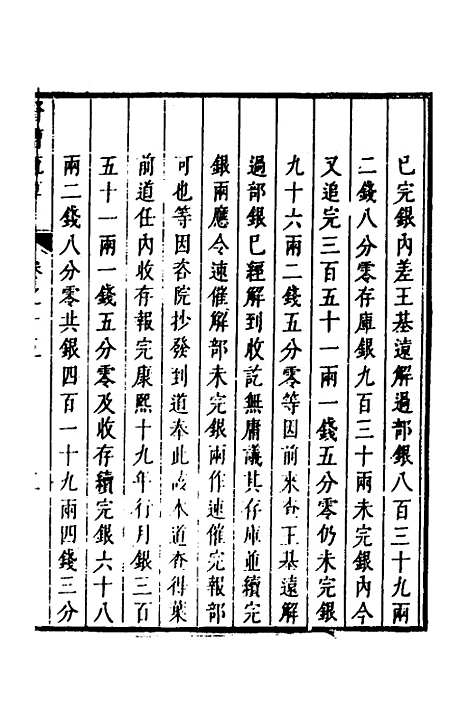 已完銀內差王基遠解過部銀八百三十九兩
二錢八分零存庫銀九百三十兩未完銀內今
又追完三百五十一兩一錢五分零仍未完銀
九十六兩二錢五分零等因前來查王基遠解
過部銀已經解到收訖無庸議其存庫並續完
銀兩應令速催解部未完銀兩作速催完報部
可也等因咨院抄發到道奉此該本道查得葉
前道任內收存報完康熙十九年行月銀三百
五十一兩一錢五分零及收存續完銀六十八
兩二錢八分零共銀四百一十九兩四錢三分